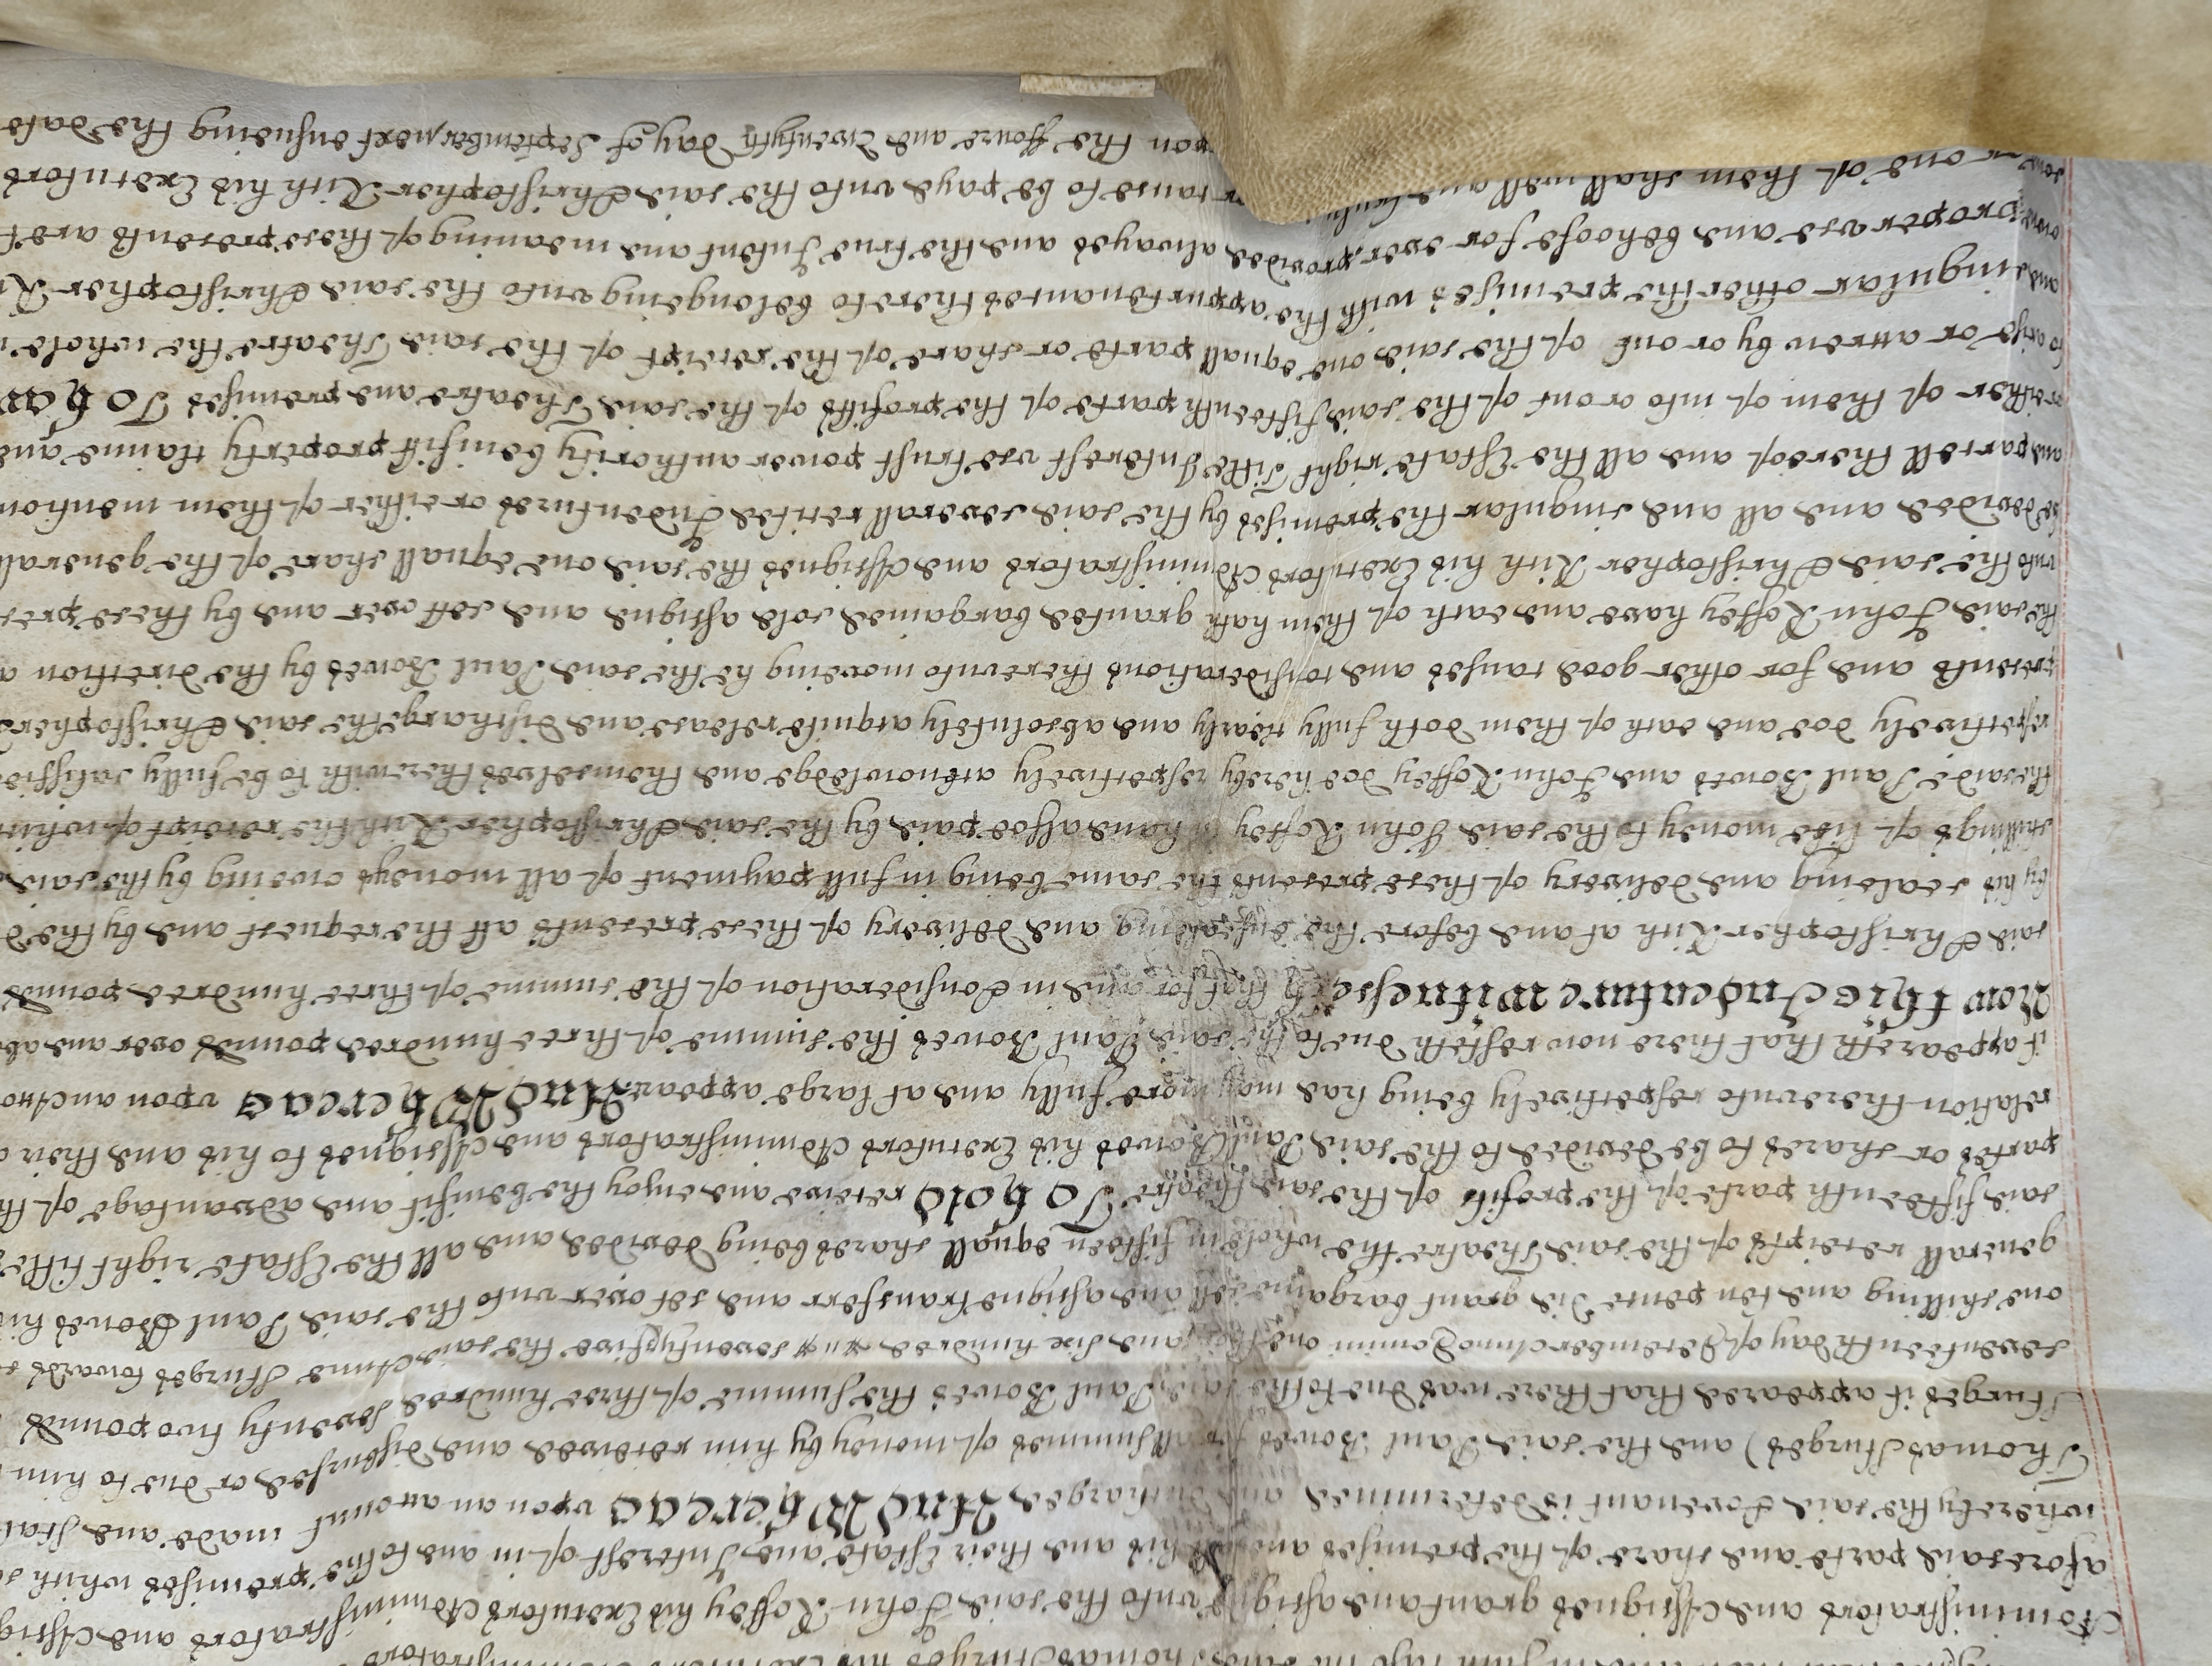 Thomas Sturges his Executors Administrators
Administrators and Assignes grant and assigne unto the said John Roffey his Executors Administrators and Assig
aforesaid parte and share of the premisses and his and their Estate and Interest of in and to the premisses which
whereby the said Covenant is determined and discharged And Whereas upon an account made and stat
Thomas Sturges) and the said Paul Bowes for all summes of money by him received and disbursed or due to him
Sturges it appeared that there was due to the said Paul Bowes the Summe of three hundred seventy two pounds
seventeenth day of December Anno Domini one thousand six hundred seventy five the said Anne Sturges towards
one shilling and ten pence did grant bargaine sell and assigne transferr and set over unto the said Paul Bowes his
generall receipts of the said Theatre the whole in fifteen equall shares being devided and all the Estate right title
said fifteenth parte of the profits of the said Theatre To hold receive and enjoy the benifit and advantage of th
partes or shares to be devided to the said Paul Bowes his Executors Administrators and Assignes to his and their
relation thereunto respectively being had may more fully and at large appear And Whereas upon an Acco
it appeareth that there now resteth due to the said Paul Bowes the summe of three hundred pounds over and ab
Now this Indenture witnesseth that for and in Consideration of the summe of three hundred pounds
said Christopher Rich at and before the ensealing and delivery of these presents att the request and by the d
by his sealeing and delivery of these presents the same being in full payment of all moneys oweing by the said
shillings of like money to the said John Roffey in hand alsoe paid by the said Christopher Rich the receipt of which
the said Paul Bowes and John Roffey doe hereby respectively acknowledge and themselves therewith to be fully satisfie
respectively doe and each of them doth fully clearly and absolutely acquite release and discharge the said Christopher
presents and for other good causes and considerations thereunto moveing he the said Paul Bowes by the direction
the said John Roffey have and each of them hath granted bargained sold assigned and sett over and by these pres
unto the said Christopher Rich his Executors Administrators and Assignes the said one equall share of the generall
be devided and all and singular the premisses by the said severall recited Indentures or either of them mention
and parcell thereof and all the Estate right Title Interest use trust power authority benifitt property claime and
or either of them of into or out of the said fifteenth parte of the profitts of the said Theatre and premisses To hav
to arise or accrew by or out of the said one equall parte or share of the receipt of the said Theatre the whole
and singular other the premisses with the appurtenances thereto belonging unto the said Christopher Ri
owne proper use and behoofe for ever provided alwayes and the true Intent and meaning of these presents are
or one of them shall well and truly cause to be payd unto the said Christopher Rich his Executors
upon the Foure and Twentyth day of September next ensueing the date